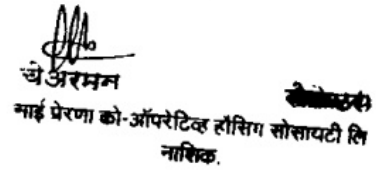 चेअरमन
माई प्रेरणा को-ऑपरेटिव्ह हौसिंग सोसायटी लि
नाशिक.